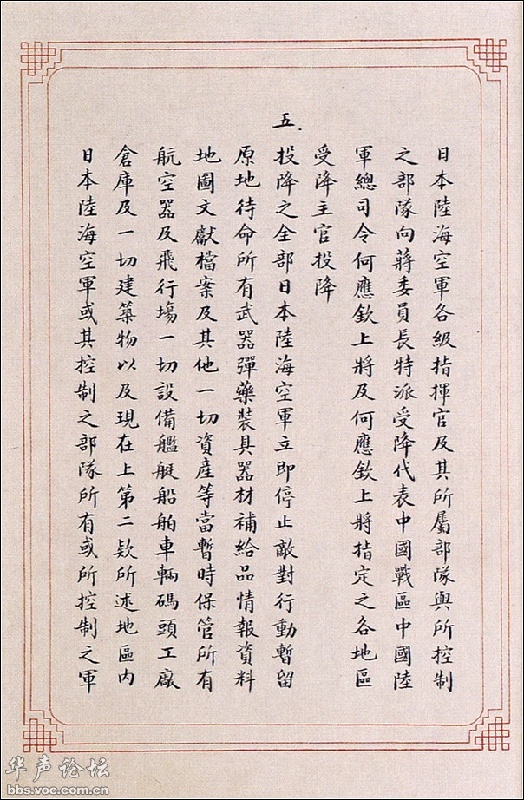 日本陸海空軍各級指揮官及其所屬部隊與所控制
之部隊向蔣委員長特派受降代表中國戰區中國陸
軍總司令何應欽上將及何應欽上將指定之各地區
受降主官投降
五.
投降之全部日本陸海空軍立即停止敵對行動暫留
原地待命所有武器彈藥裝具器材補給品情報資料
地圖文獻檔案及其他一切資產等當暫時保管所有
航空器及飛行場一切設備艦艇船舶車輛碼頭工廠
倉庫及一切建築物以及現在上第二款所述地區內
日本陸海空軍或其控制之部隊所有或所控制之軍
华声论坛
bbs.voc.com.cn